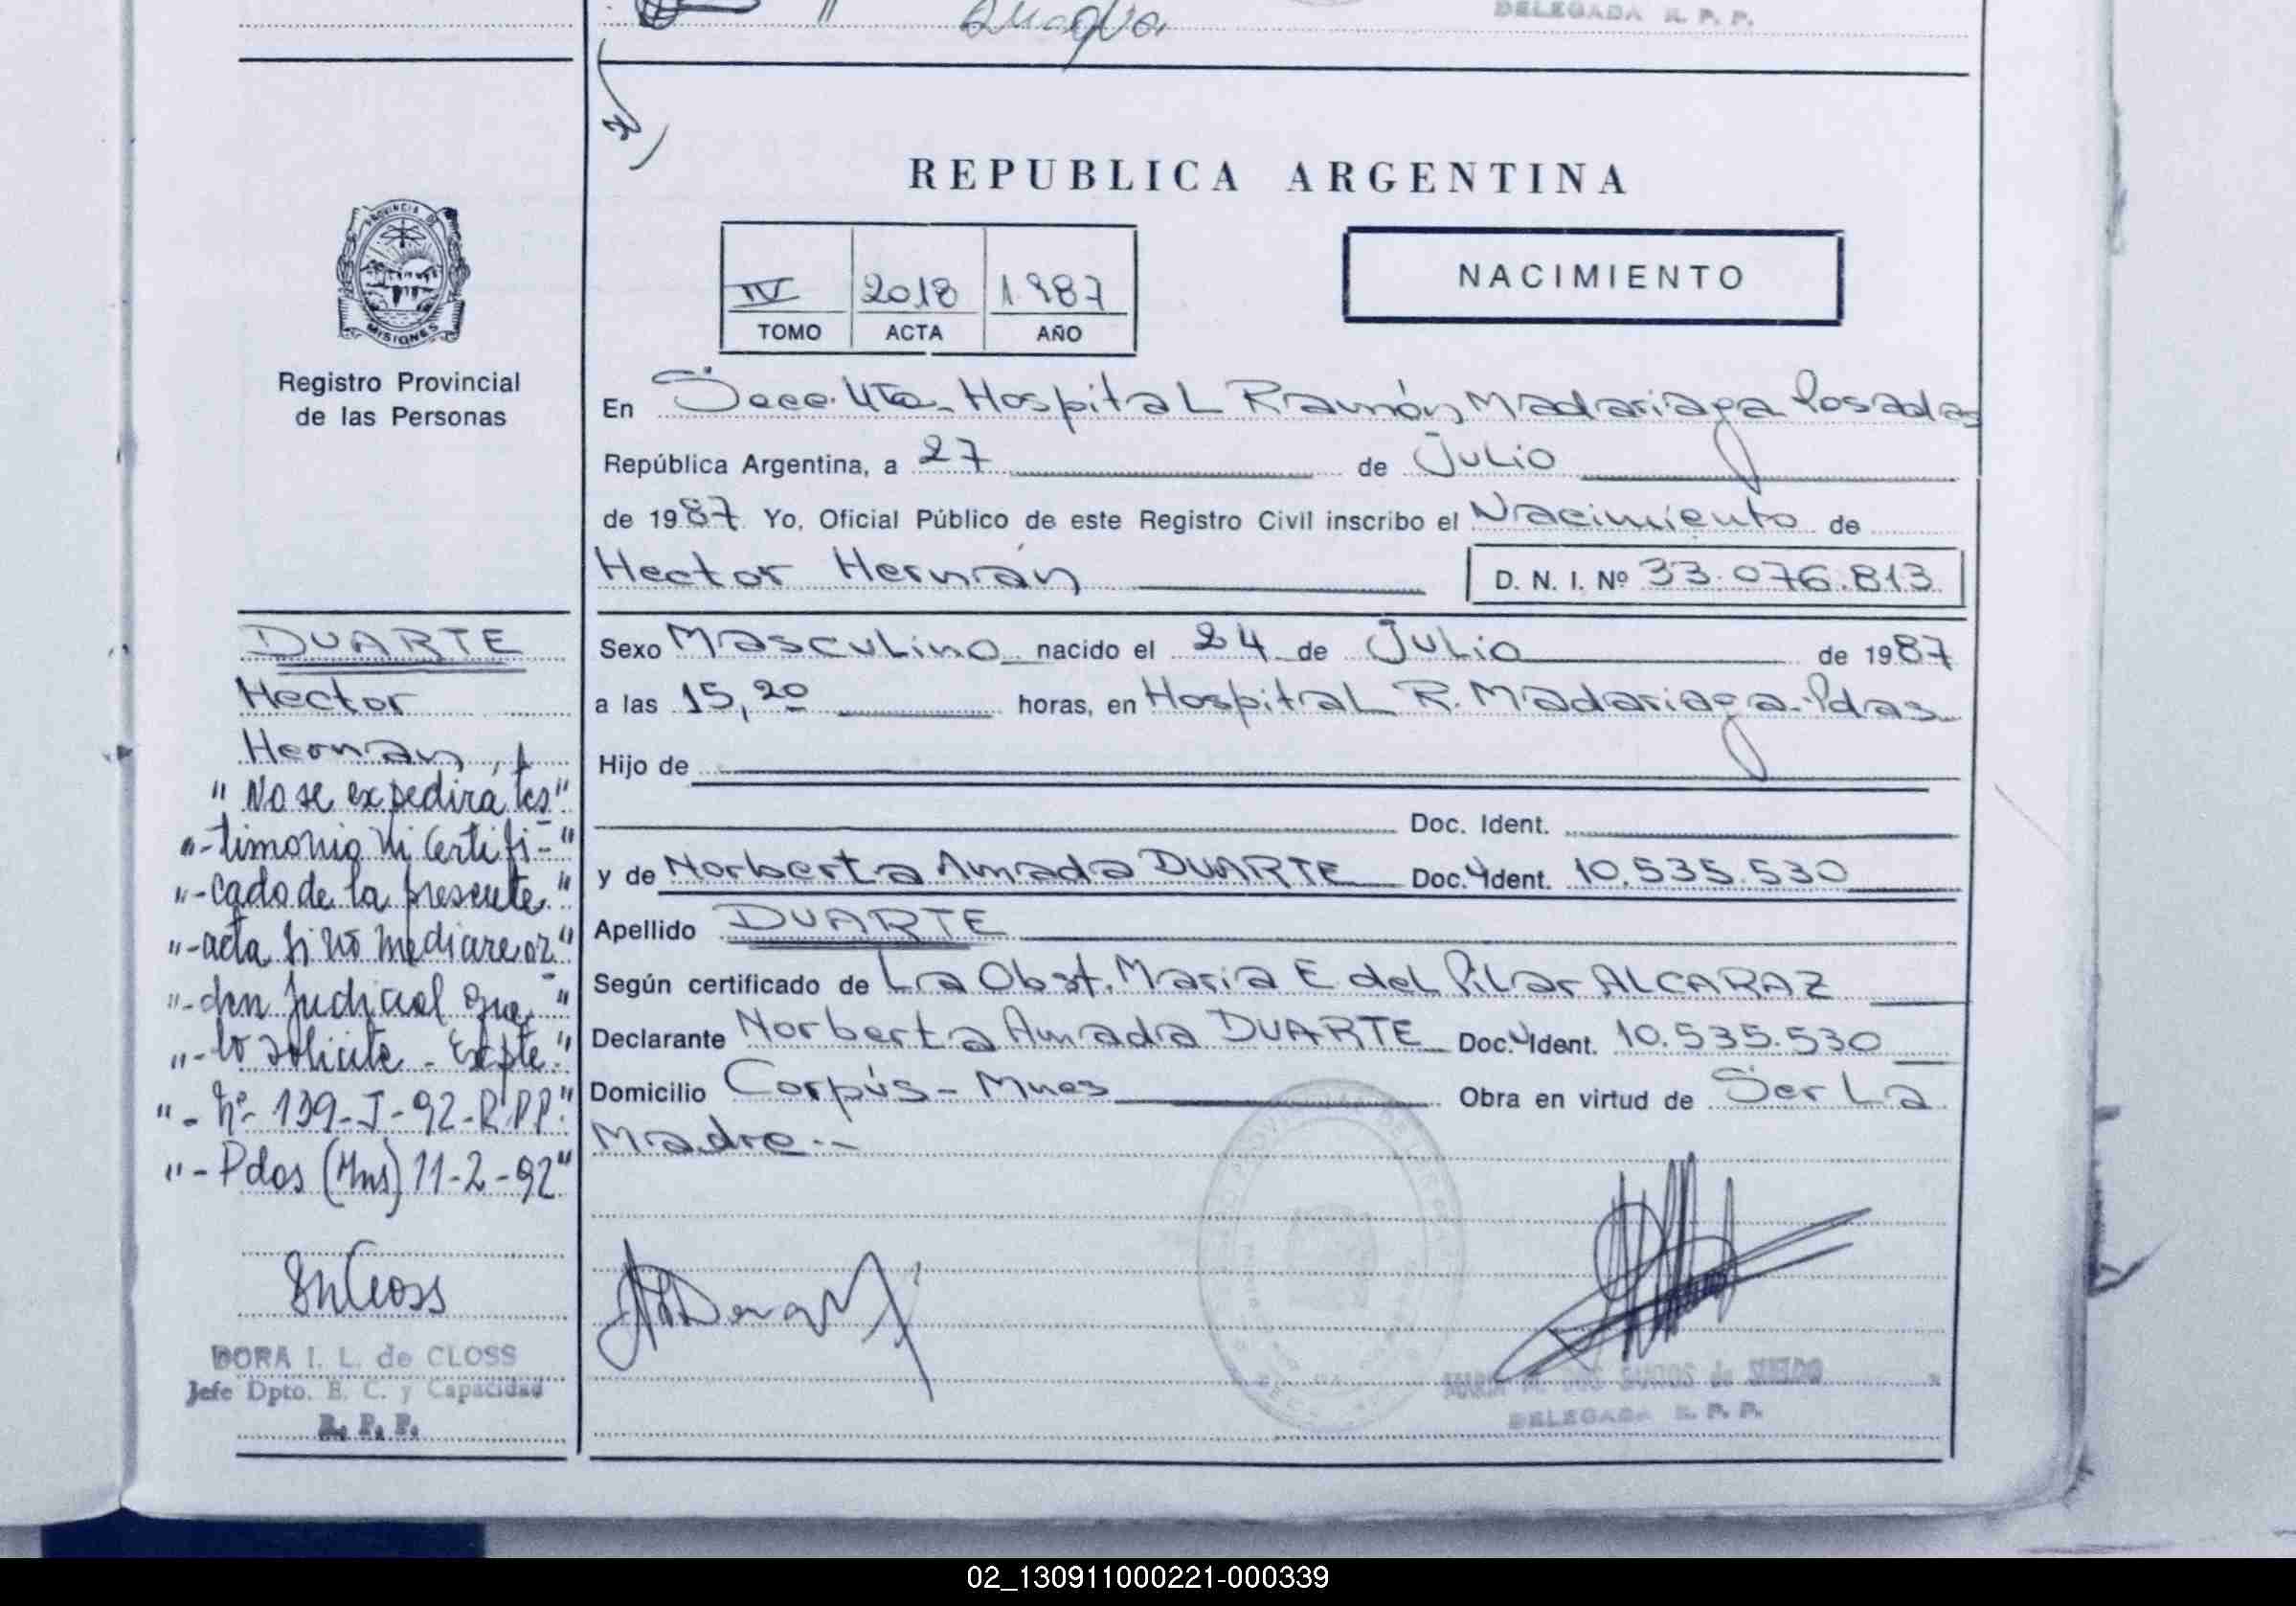 DELEGADA R. P. P.
REPUBLICA ARGENTINA
PROVINCIA DE
MISIONES
Registro Provincial
de las Personas
IV 2018 1987
TOMO ACTA AÑO
NACIMIENTO
En Secc. 4ta - Hospital Ramón Madariaga Posadas
República Argentina, a 27 de Julio
de 1987 Yo, Oficial Público de este Registro Civil inscribo el Nacimiento de
Hector Hernán D. N. I. Nº 33.076.813
Sexo Masculino nacido el 24 de Julio de 1987
a las 15,20 horas, en Hospital R. Madariaga - Pdas
Hijo de
Doc. Ident.
y de Norberta Amada DUARTE Doc. Ident. 10.535.530
Apellido DUARTE
Según certificado de La Obst. Maria E del Pilar ALCARAZ
Declarante Norberta Amada DUARTE Doc. Ident. 10.535.530
Domicilio Corpús - Mnes Obra en virtud de Ser La
Madre --
DUARTE
Hector
Hernan
"No se expedirá tes"
"-timonio ni Certifi-"
"-cado de la presente"
"-acta si no mediare or"
"-den judicial que"
"-lo solicite - Expte."
"- Nº 139-J-92-R.P.P."
"- Pdas (Mns) 11-2-92"
DORA I. L. de CLOSS
Jefe Dpto. E. C. y Capacidad
R. P. P.
DELEGADA R. P. P.
02_130911000221-000339